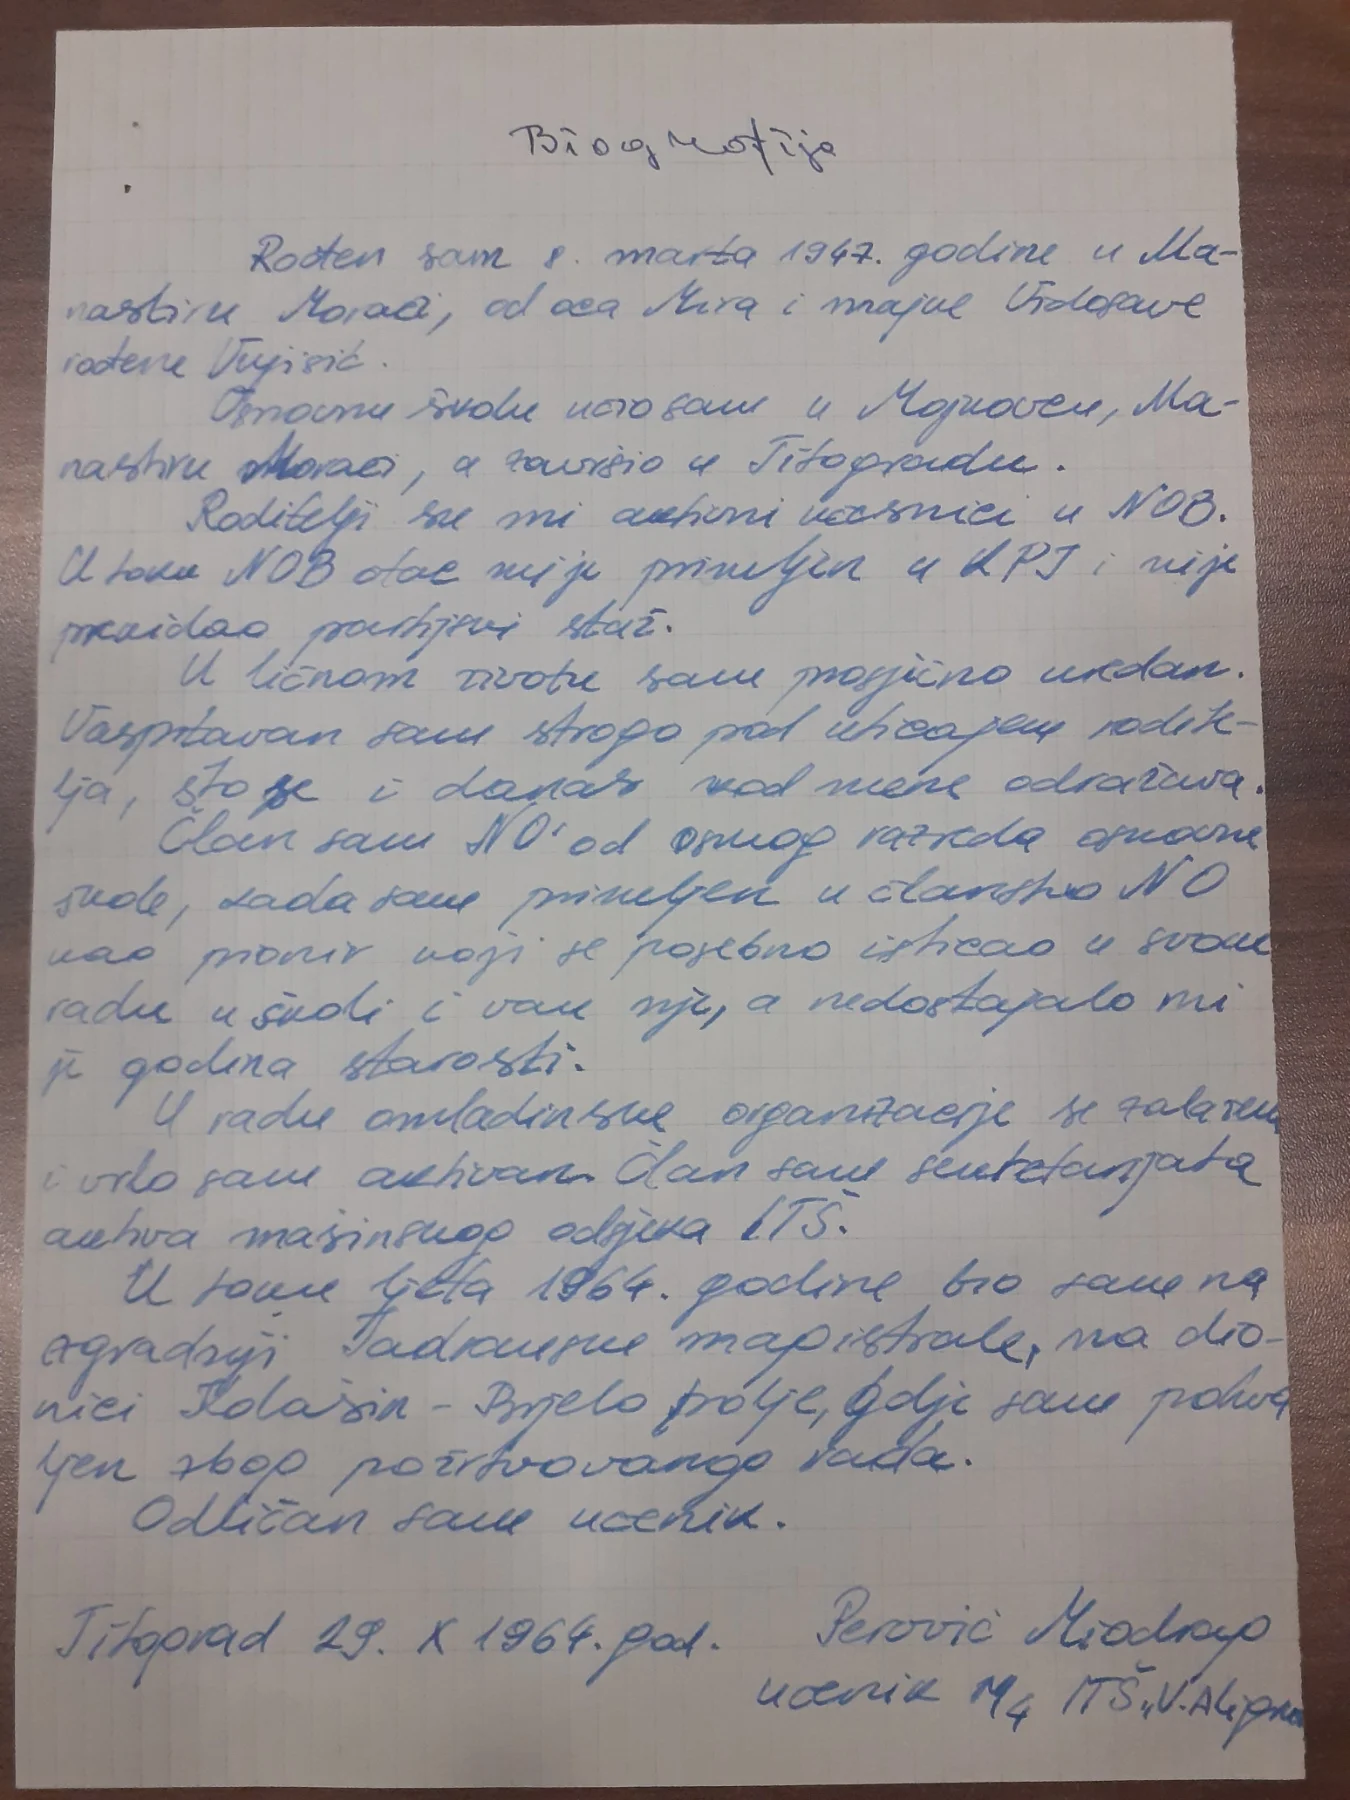 Biografija
Rođen sam 8. marta 1947. godine u Ma-
nastiru Morači, od oca Mira i majke Vidosave
rođene Vujisić.
Osnovnu školu učio sam u Mojkovcu, Ma-
nastiru Morači, a završio u Titogradu.
Roditelji su mi aktivni učesnici u NOB.
U toku NOB otac mi je primljen u KPJ i nije
prekidao partijski staž.
U ličnom životu sam prosječno uredan.
Vaspitavan sam strogo pod uticajem rodite-
lja, što se i danas kod mene odražava.
Član sam NO od osmog razreda osnovne
škole, kada sam primljen u članstvo NO
kao pionir koji se posebno isticao u svom
radu u školi i van nje, a nedostajalo mi
je godina starosti.
U radu omladinske organizacije se zalažem
i vrlo sam aktivan. Član sam sekretarijata
aktiva mašinskog odsjeka ITŠ.
U toku ljeta 1964. godine bio sam na
izgradnji Jadranske magistrale, na dio-
nici Kolašin - Bijelo polje, gdje sam pohva
ljen zbog požrtvovanog rada.
Odličan sam učenik.
Titograd 29. X 1964. god. Perović Miodrag
učenik M4 ITŠ „V. Aligru